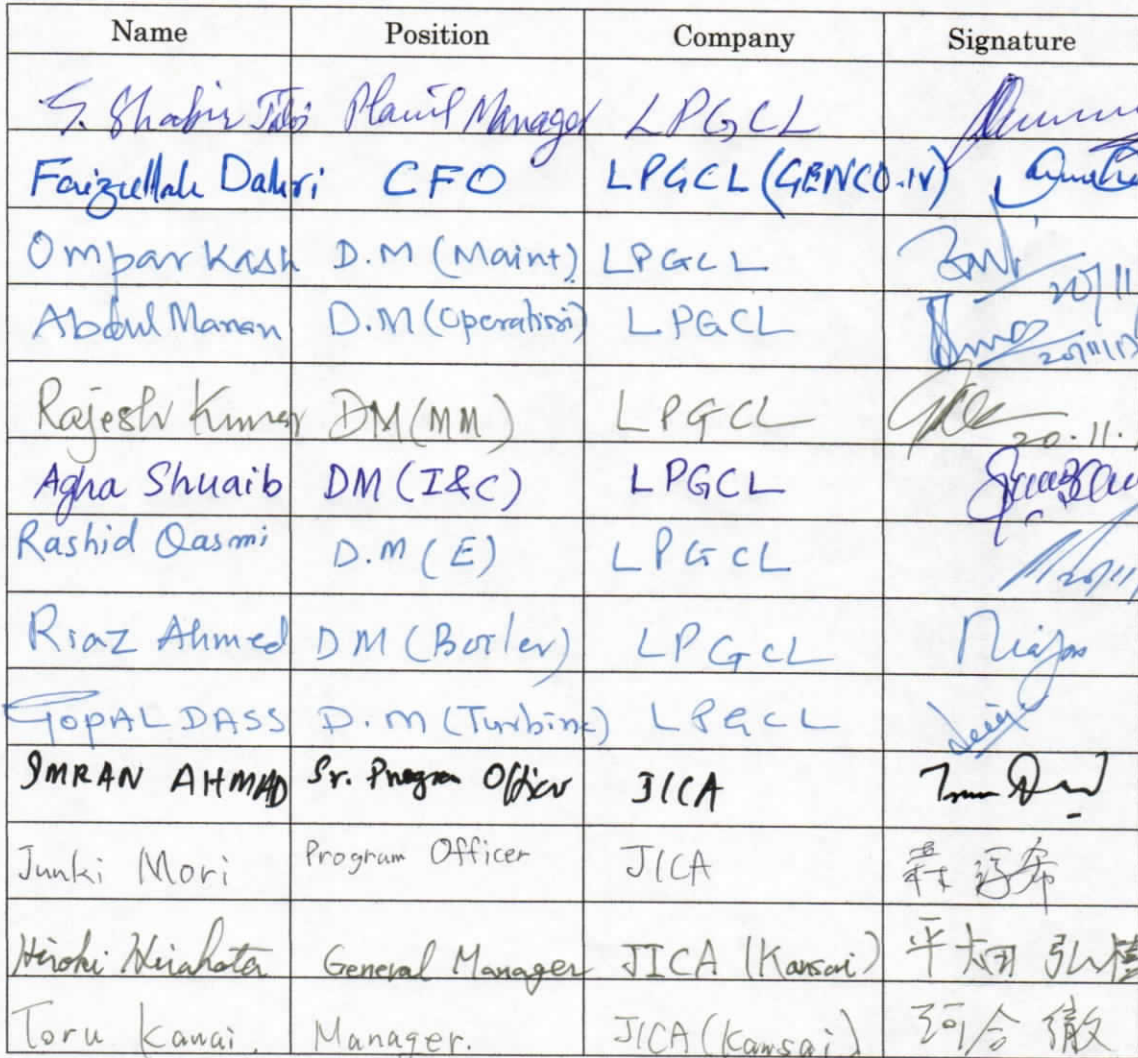 Name Position Company Signature
S. Shabir Plant Manager LPGCL
Faizullah Dahri CFO LPGCL (GENCO-IV)
Omparkash D.M (Maint) LPGCL 20/11
Abdul Manan D.M (Operation) LPGCL 20/11/
Rajesh Kumar DM (MM) LPGCL 20.11.
Agha Shuaib DM (I&C) LPGCL
Rashid Qasmi D.M (E) LPGCL
Riaz Ahmed DM (Boiler) LPGCL Riaz
GOPAL DASS D.M (Turbine) LPGCL
IMRAN AHMAD Sr. Program Officer JICA
Junki Mori Program Officer JICA 森
Hiroki Hirahata General Manager JICA (Kansai) 平畑 弘樹
Toru Kawai. Manager. JICA (Kansai) 河合 徹